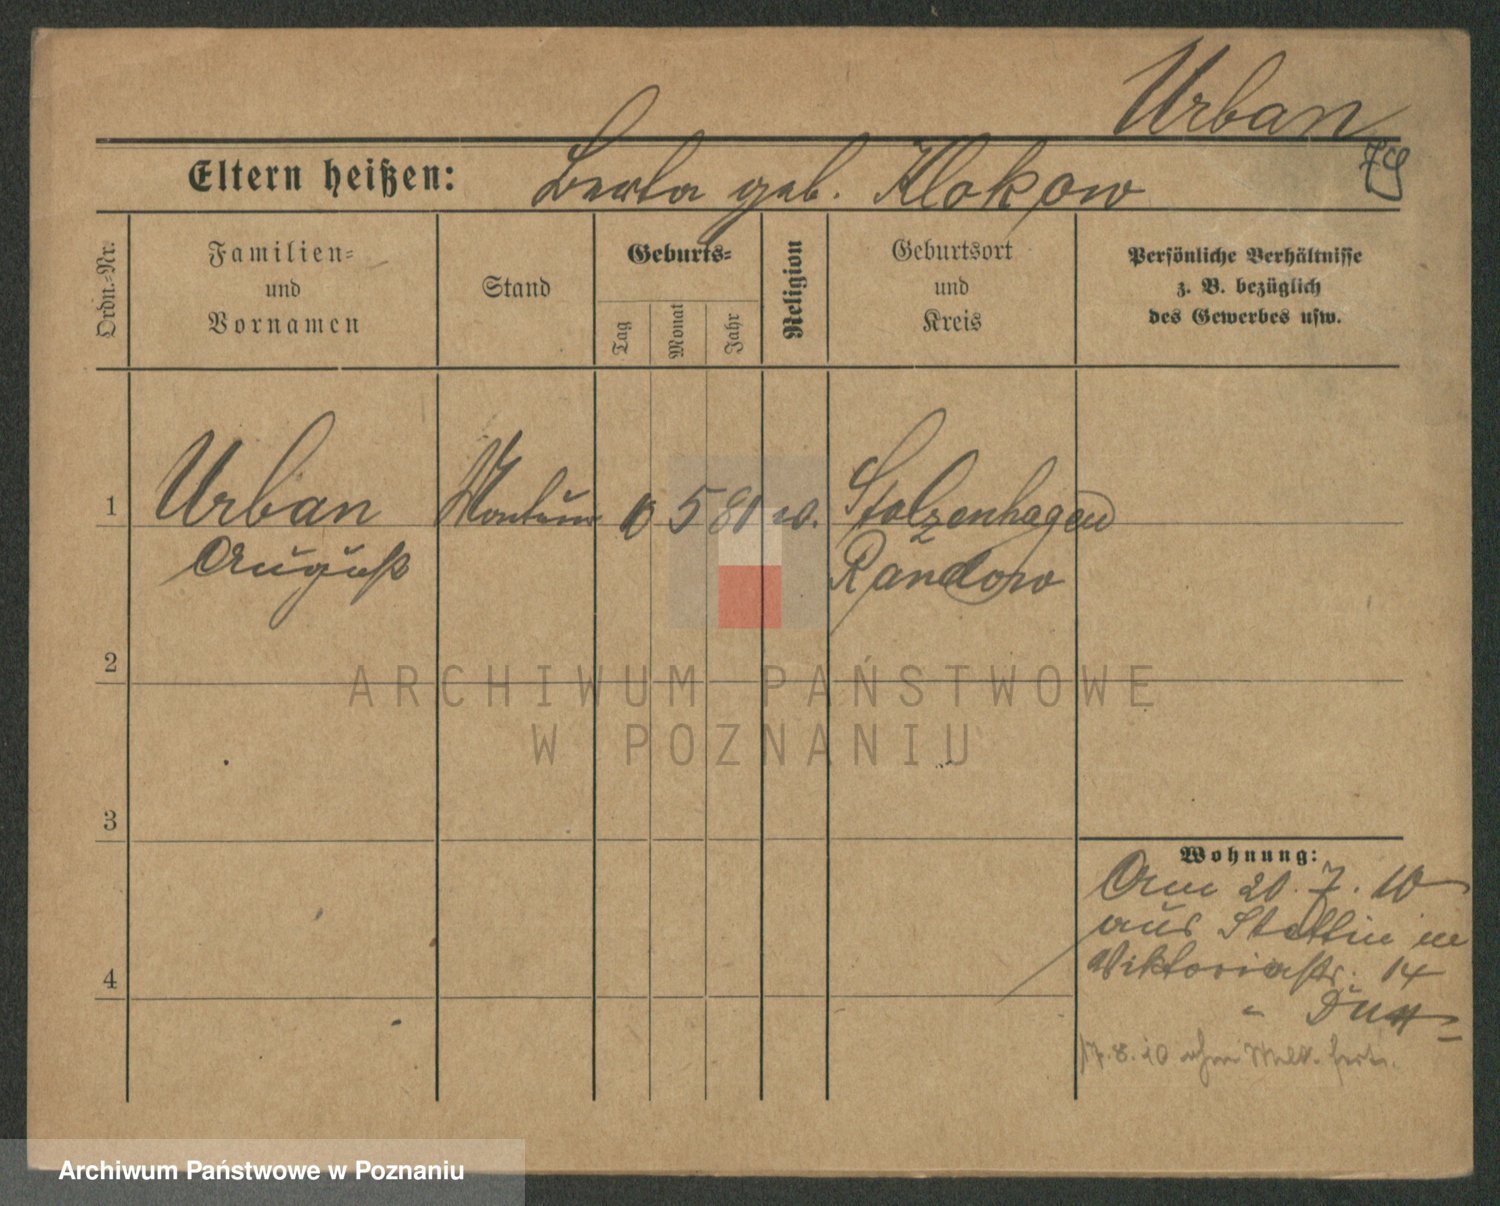 Urban
79
Eltern heißen: Berta geb. Klokow
Ordn.-Nr.
Familien-
und
Vornamen
Stand
Geburts-
Tag
Monat
Jahr
Religion
Geburtsort
und
Kreis
Persönliche Verhältnisse
z. B. bezüglich
des Gewerbes usw.
1 Urban Monteur 10 5 81 ev. Stolzenhagen
August Randow
2
3
4
Wohnung:
Am 20. 7. 10
aus Stettin in
Viktoriastr. 14
17. 8. 10 ohne Meld. fort.
ARCHIWUM PAŃSTWOWE
W POZNANIU
Archiwum Państwowe w Poznaniu